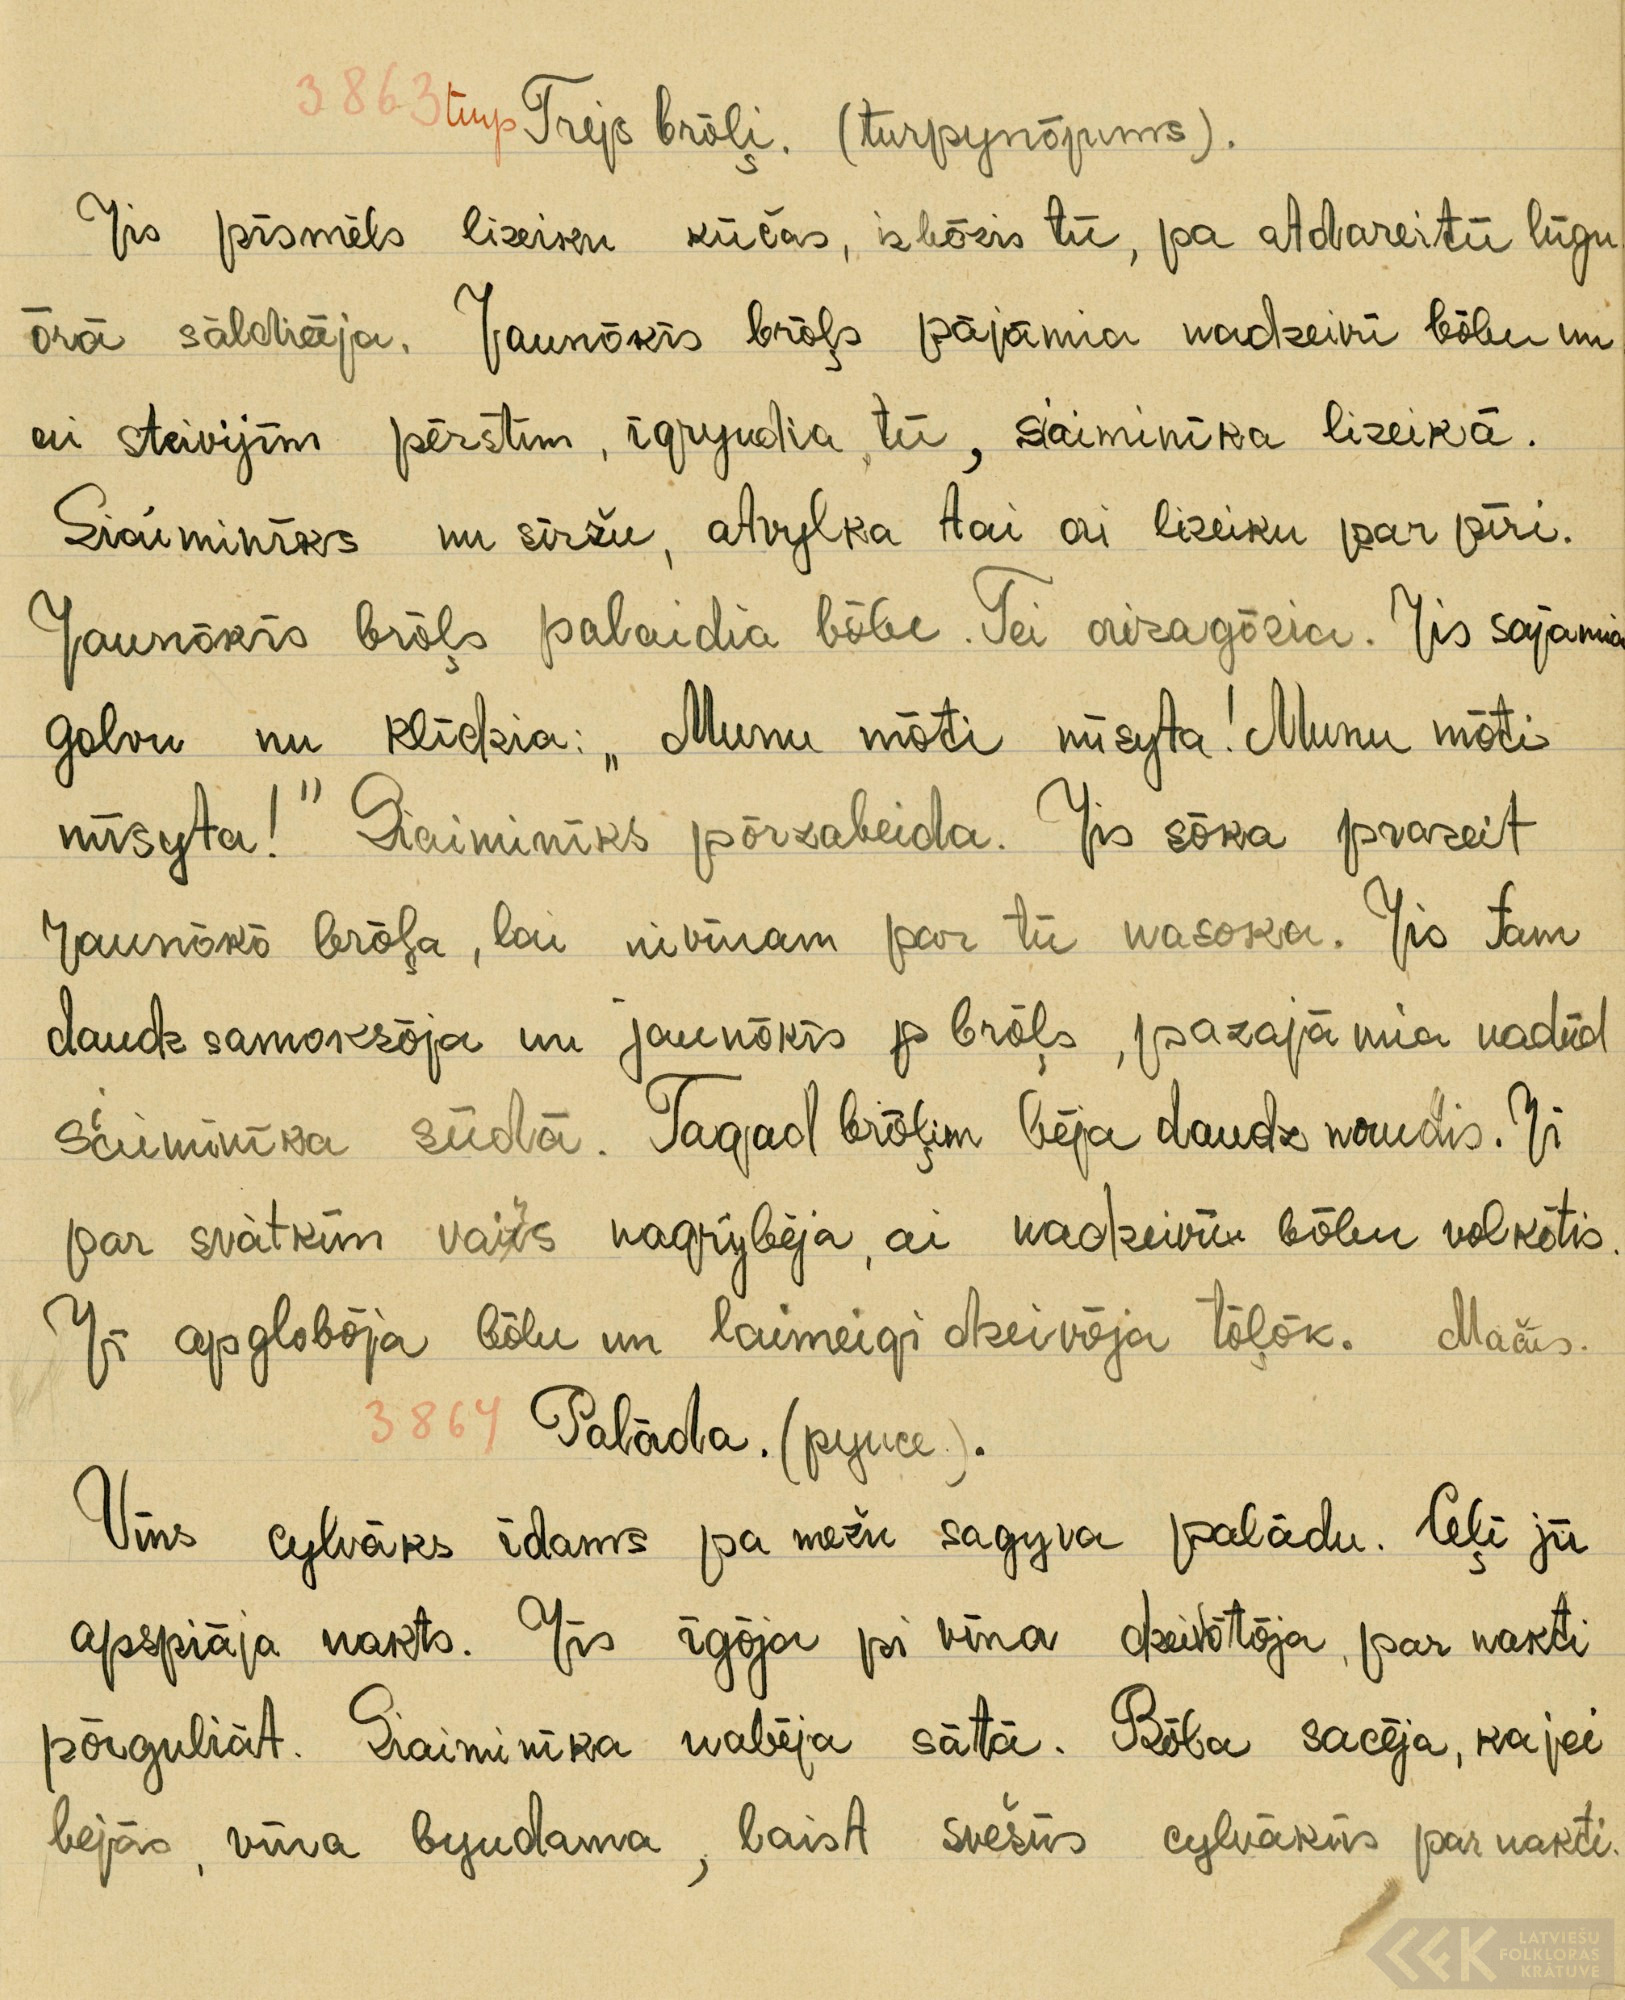 3863 turp Trejs brōļi. (turpynōjums).
Jis pīsmēls lizeiku kūčas, izbōzis tū, pa atdareitū lūgu
ōrā sāldieāja. Jaunōkīs brōļs pajāmia nadzeivī bōbu un
ai steivijim pērstim, īgryudia tū, siaiminīka lizeikā.
Siaiminīks nu siržu, atvylka tai ai lizeiku par pīri.
Jaunōkīs brōļs palaidia bōbu. Tei aizagōzia. Jis sajāmia
golvu nu klīdzia: „Munu mōti nūsyta! Munu mōti
nūsyta!" Siaiminīks pōrzabeida. Jis sōka prazeit
Jaunōkō brōļa, lai nivīnam par tū nasoka. Jis tam
daudz samoksōja un jaunōkīs p brōļs, pazajāmia nadūd
siaiminīka sūdā. Tagad brōļim bēja daudz naudis. Ji
par svātkim vairs nagrybēja, ai nadzeivū bōbu volkōtis.
Ji apglobōja bōbu un laimeigi dzeivōja tōļōk. Mačs.
3864 Palāda. (pyuce.).
Vīns cylvāks īdams pa mežu sagyva palādu. Ceļī jū
apspiāja nakts. Jis īgōja pi vīna dzeivōtōja, par nakti
pōrguliāt. Siaiminīka nabēja sātā. Bōba sacēja, ka jei
bejās, vīna byudama, laist svešūs cylvākūs par nakti.
LATVIEŠU
FOLKLORAS
KRĀTUVE